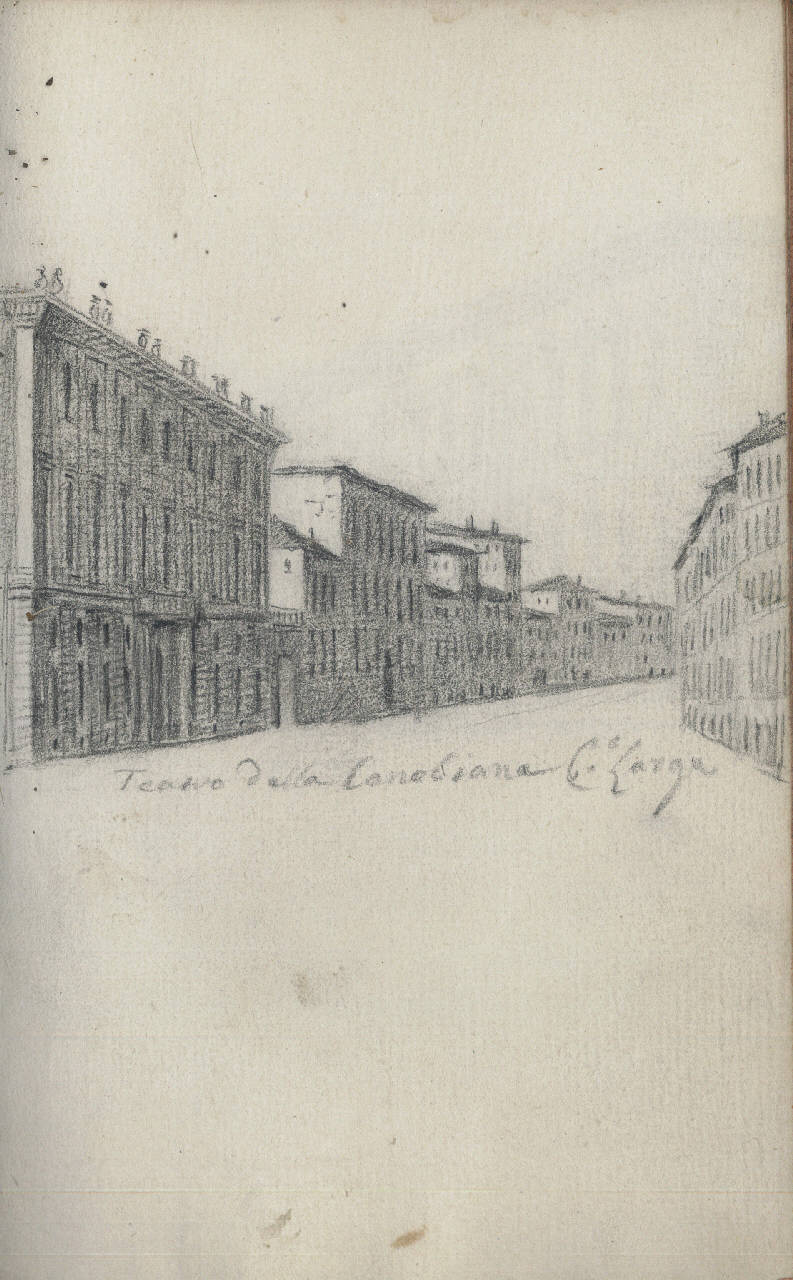 Teatro Della Canobiana C.a Larga